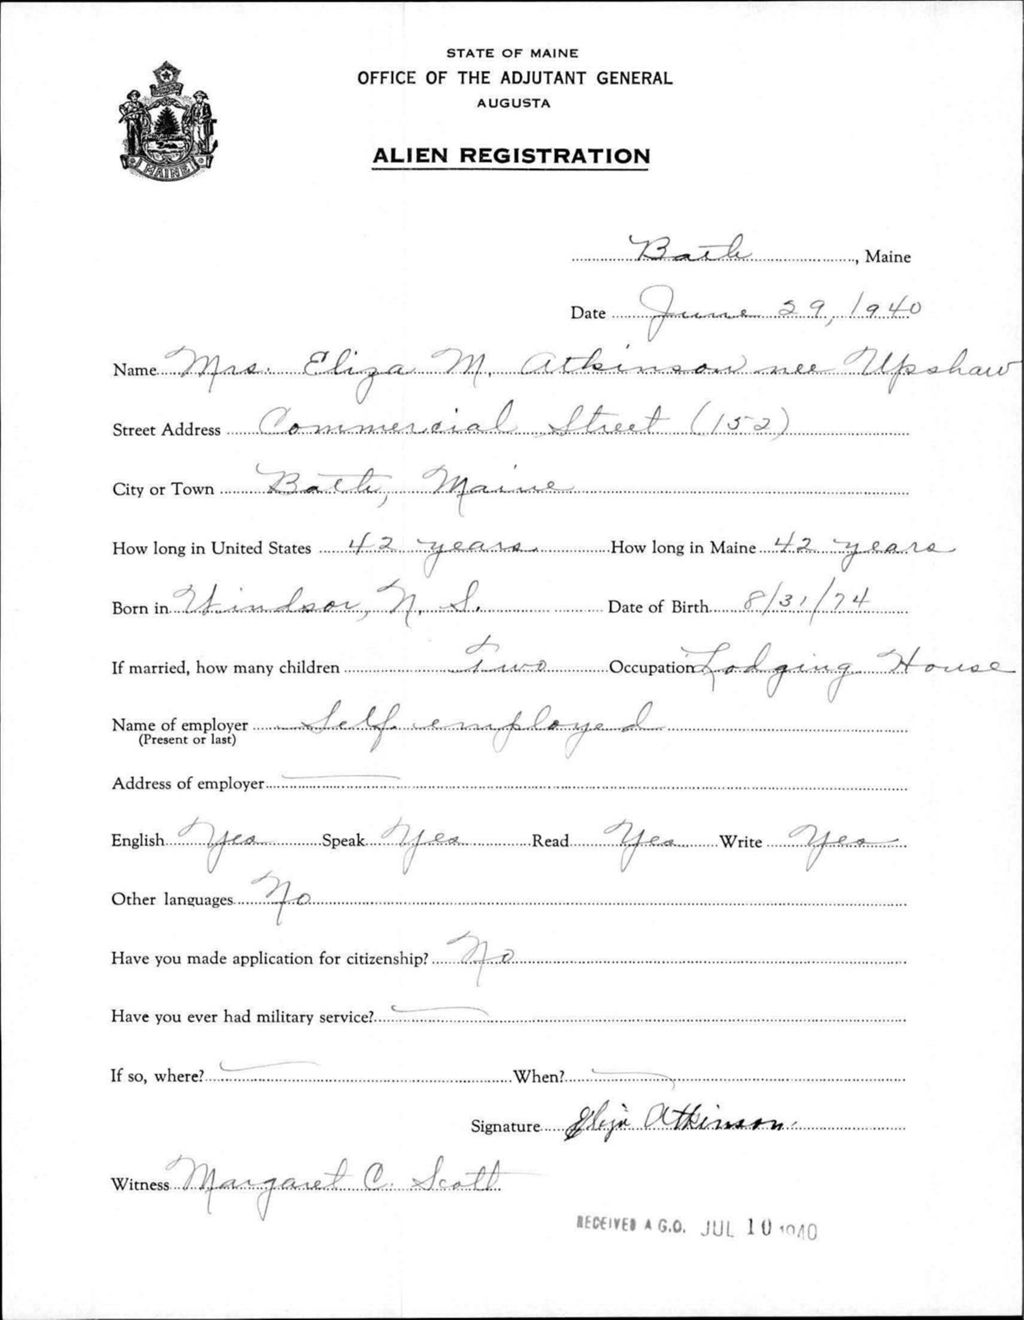 STATE OF MAINE
OFFICE OF THE ADJUTANT GENERAL
AUGUSTA
ALIEN REGISTRATION
MAINE
Bath, Maine
Date June 29, 1940
Name Mrs. Eliza M. Atkinson nee Upshaw
Street Address Commercial Street (152)
City or Town Bath, Maine
How long in United States 42 years How long in Maine 42 years
Born in Windsor, N. S. Date of Birth 8/31/74
If married, how many children Two Occupation Lodging House
Name of employer Self employed
(Present or last)
Address of employer
English Yes Speak Yes Read Yes Write Yes
Other languages No
Have you made application for citizenship? No
Have you ever had military service?
If so, where? When?
Signature Eliza Atkinson.
Witness Margaret C. Scott
RECEIVED A.G.O. JUL 10 1940